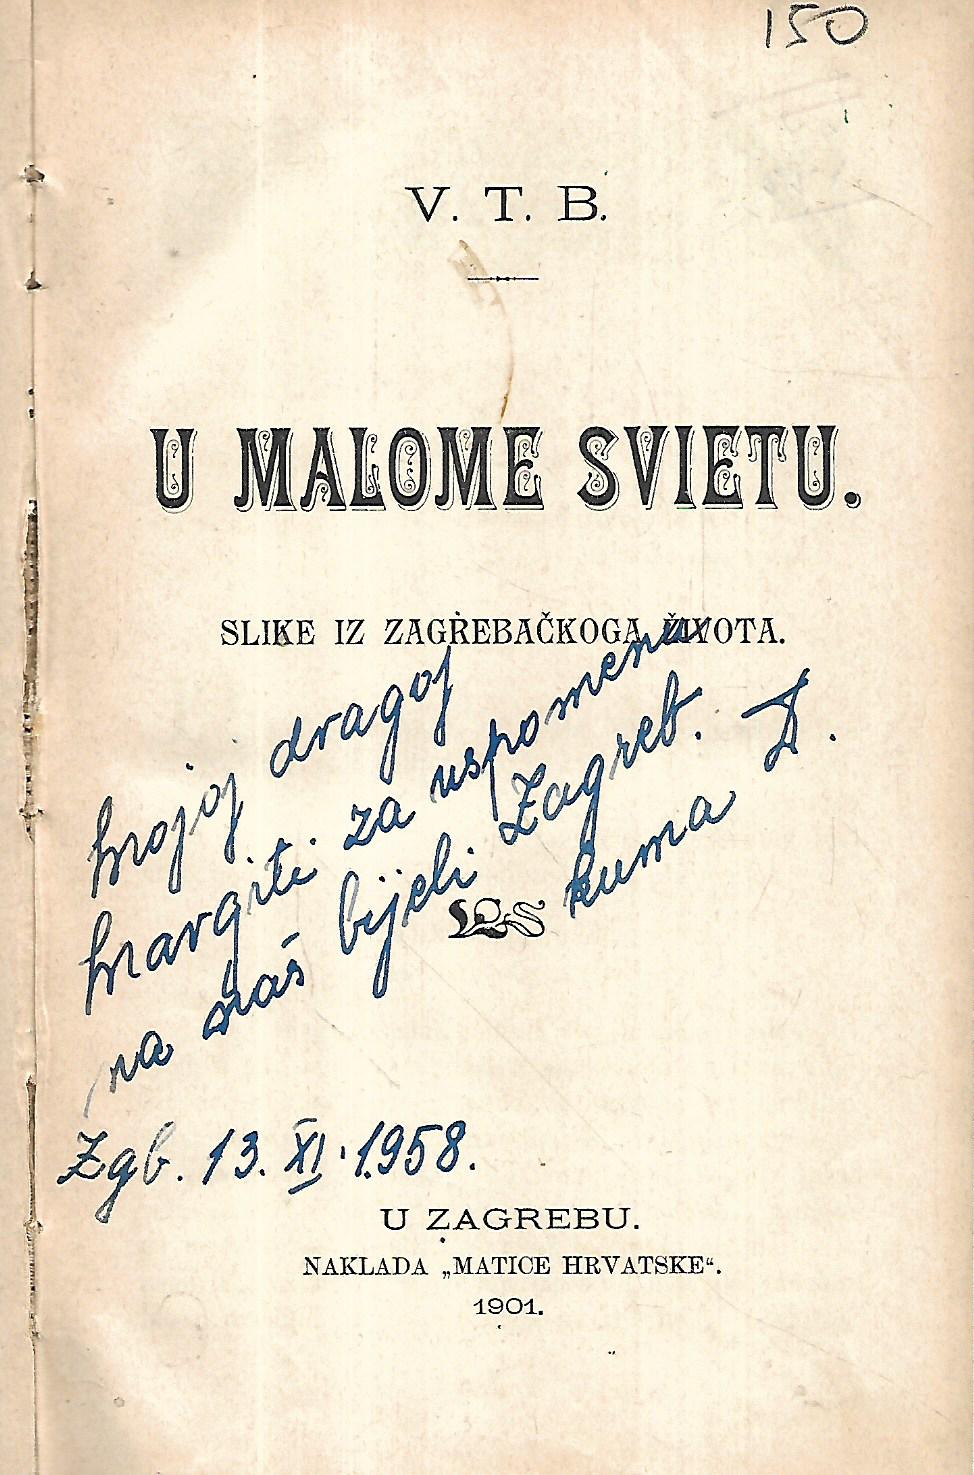 150
V. T. B.
U MALOME SVIETU.
SLIKE IZ ZAGREBAČKOGA ŽIVOTA.
Mojoj dragoj
Margiti za uspomenu
na naš bijeli Zagreb.
kuma D.
Zgb. 13. XI. 1958.
U ZAGREBU.
NAKLADA „MATICE HRVATSKE“.
1901.